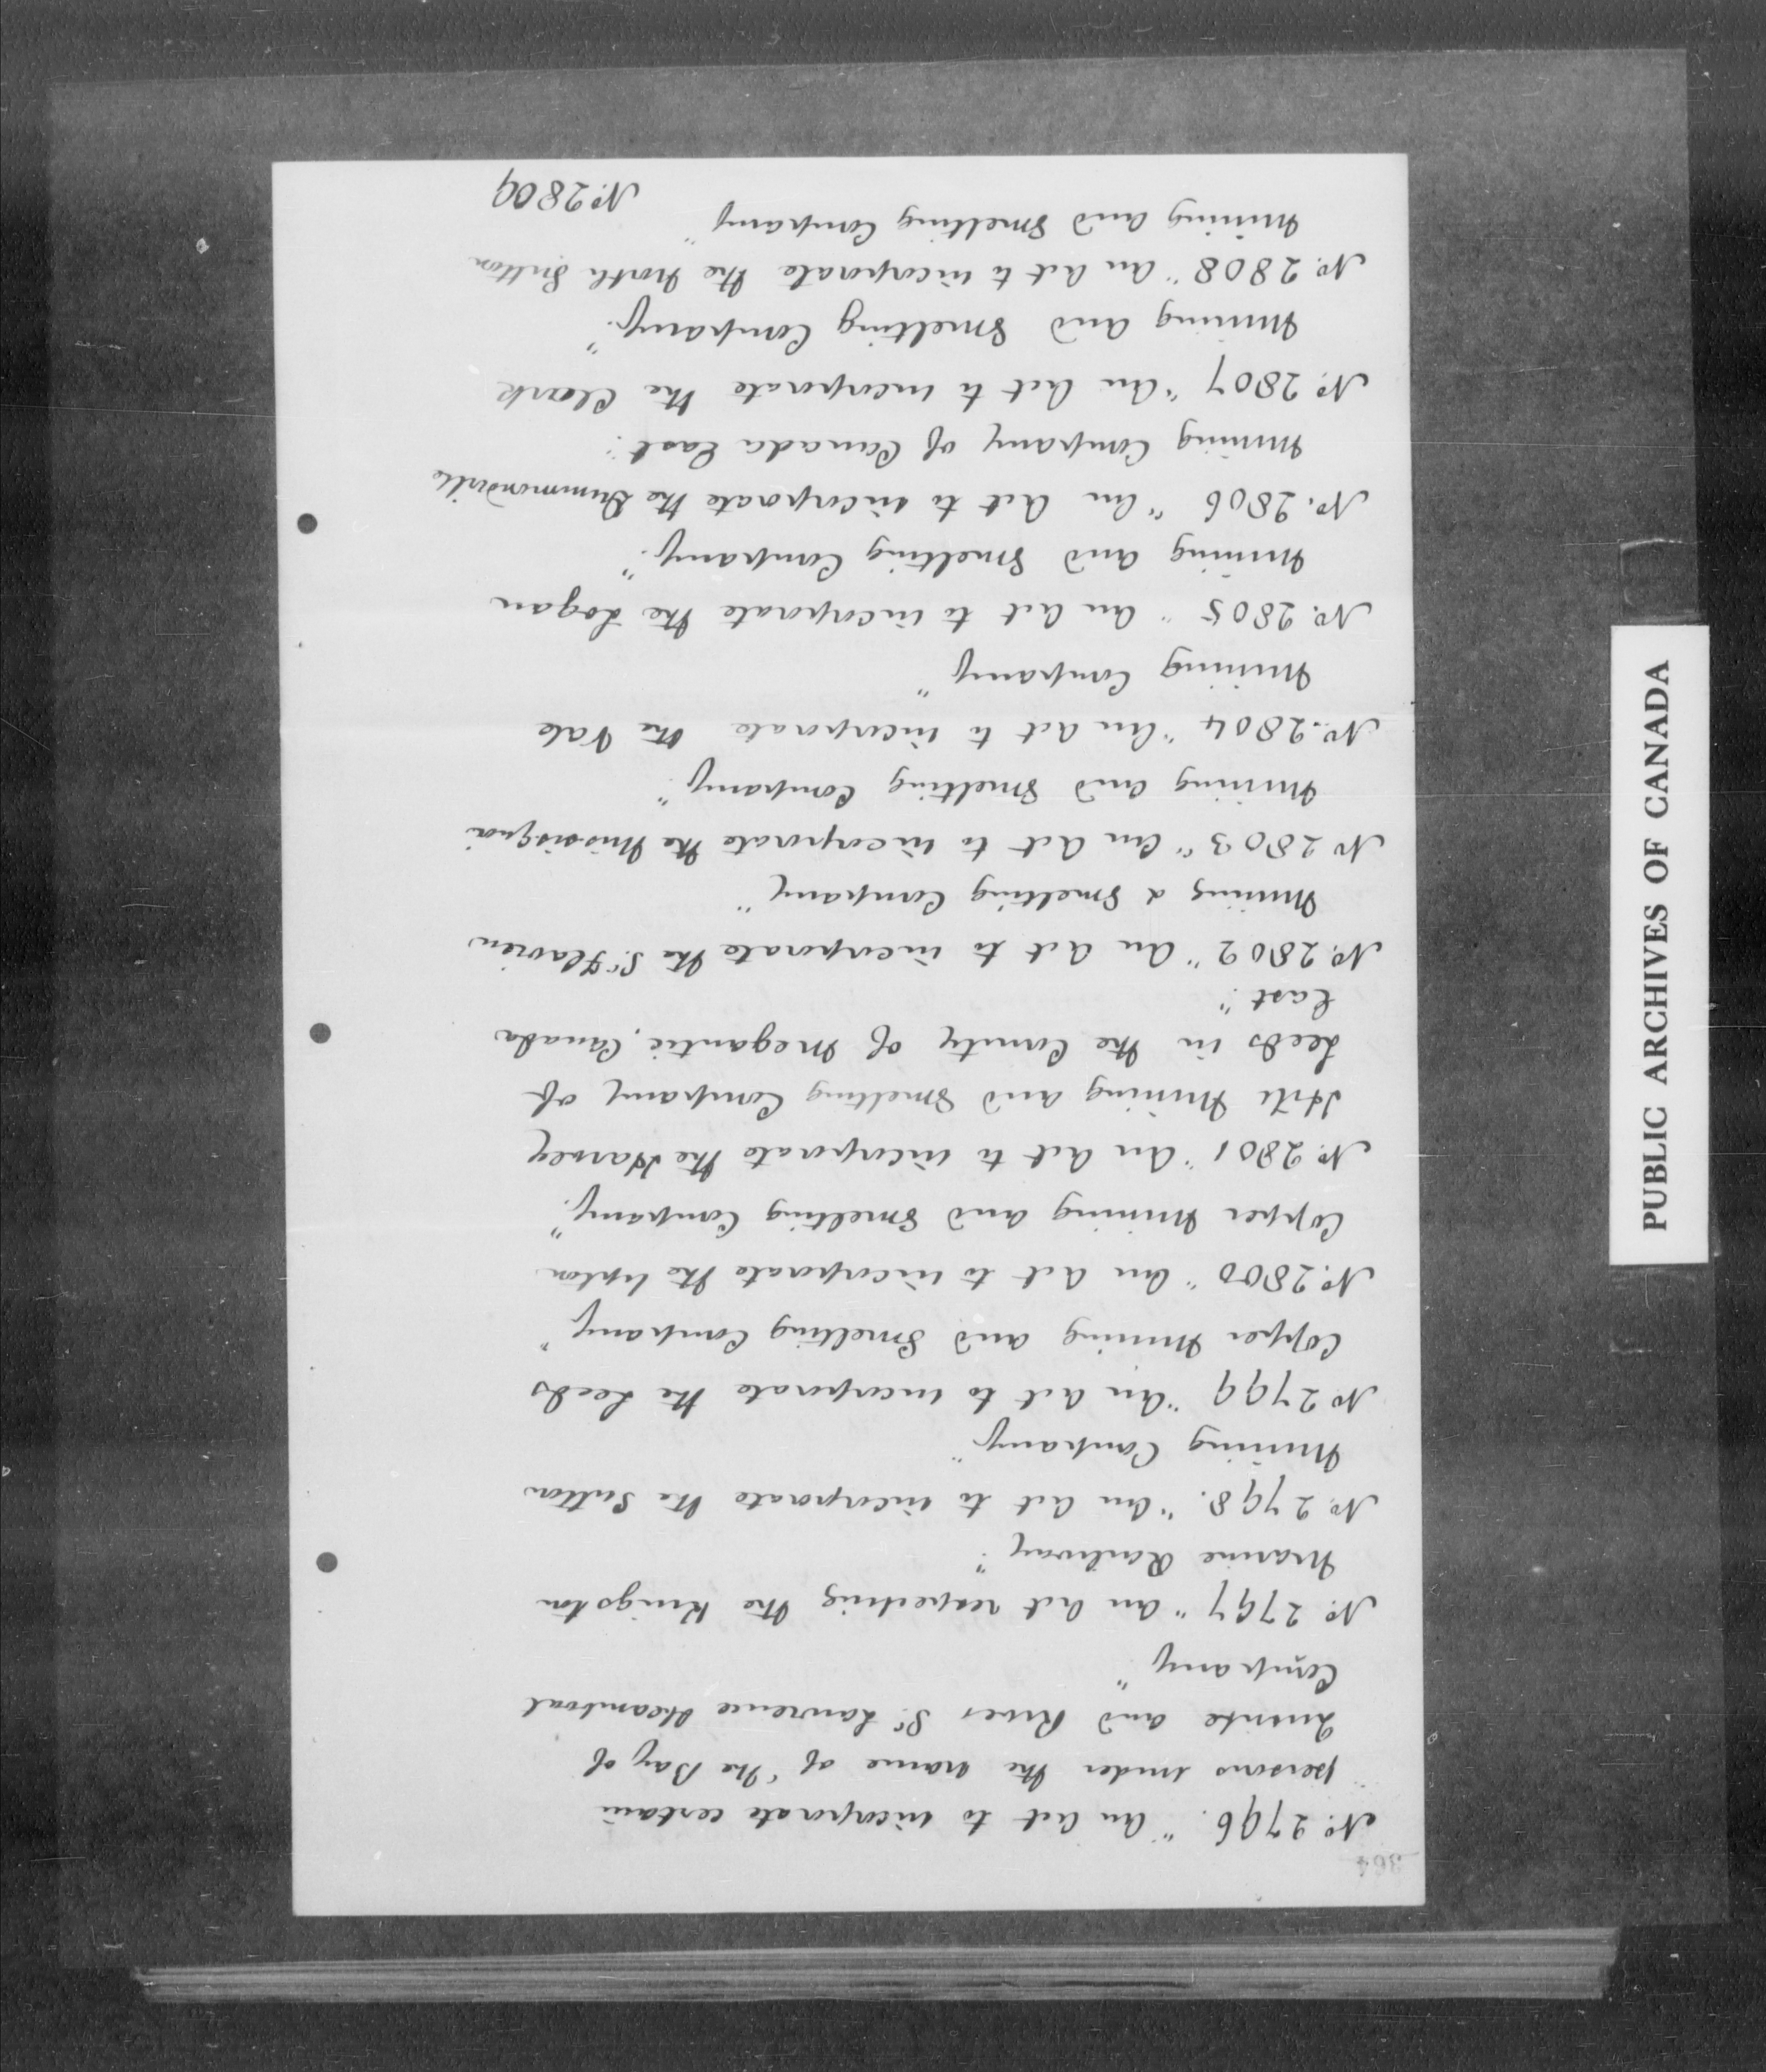 364
No. 2796. "An Act to incorporate certain
persons under the name of "The Bay of
Quinté and River St. Lawrence Steamboat
Company"
No. 2797 "An Act respecting the Kingston
Marine Railway".
No. 2798. "An Act to incorporate the Sutton
Mining Company"
No. 2799 "An Act to incorporate the Leeds
Copper Mining and Smelting Company"
No. 2800 "An Act to incorporate the Upton
Copper Mining and Smelting Company."
No. 2801 "An Act to incorporate the Harvey
Hill Mining and Smelting Company of
Leeds in the County of Megantic, Canada
East".
No. 2802 "An Act to incorporate the St. Flavien
Mining & Smelting Company"
No. 2803 "An Act to incorporate the Missisquoi
Mining and Smelting Company".
No. 2804 "An Act to incorporate the Vale
Mining Company"
No. 2805 "An Act to incorporate the Logan
Mining and Smelting Company."
No. 2806 "An Act to incorporate the Drummondville
Mining Company of Canada East".
No. 2807 "An Act to incorporate the Clark
Mining and Smelting Company."
No. 2808 "An Act to incorporate the North Sutton
Mining and Smelting Company"
No. 2809
PUBLIC ARCHIVES OF CANADA